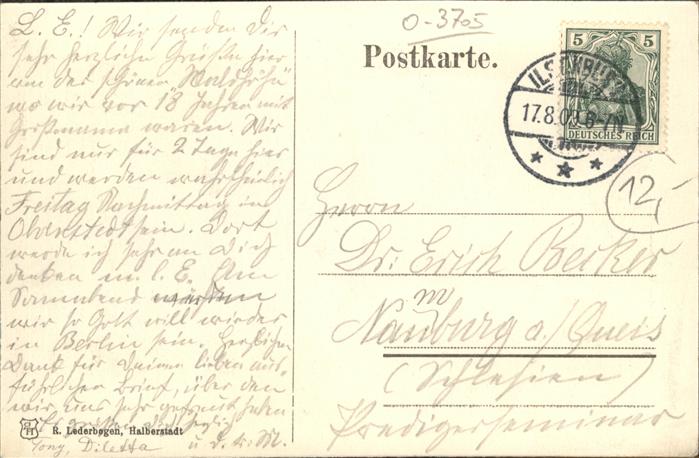 O-3705
L. E.! Wir senden Dir
sehr herzliche Grüße hier
von der schönen Waldhöhe
wo wir vor 18 Jahren mit
Großmama waren. Wir
sind nur für 2 Tage hier
und werden wahrscheinlich
Freitag Nachmittag in
Ohrenstedt sein. Dort
werde ich sehr an Dich
denken m. l. E. Am
Sonnabend werden
wir so Gott will wieder
in Berlin sein. Herzlichen
Dank für Deinen lieben aus-
führlichen Brief, über den
wir uns sehr gefreut haben
Tony, Diletta u. d. k. M.
R. Lederbogen, Halberstadt
Postkarte.
5 5
DEUTSCHES REICH
17.8.09.6-7N
12,-
Herrn
Dr. Erich Becker
Naumburg a/Queis
(Schlesien)
Predigerseminar